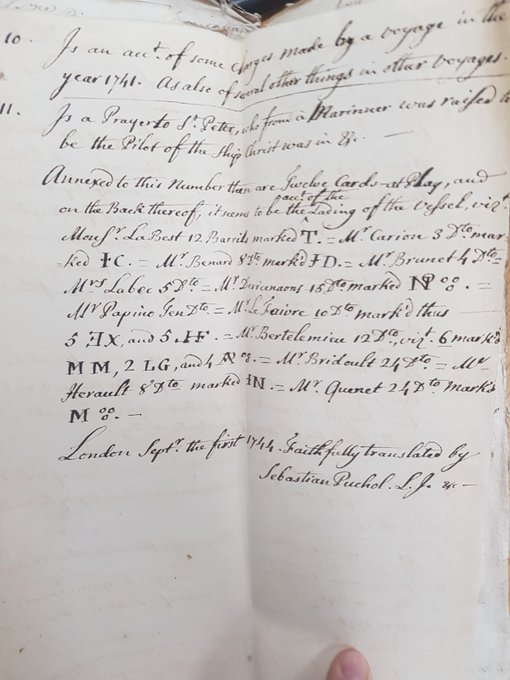 10. Is an acct. of some charges made by a voyage in the
year 1741. As also of several other things in other voyages.
11. Is a Prayer to St. Peter, who from a Marinner was raised to
be the Pilot of the Ship Christ was in &c. —
Annexed to this Number there are Twelve Cards-at Play, and
acct. of the
on the Back thereof, it seems to be the Lading of the Vessel, vizt.
Monsr. La Best 12 Barrils marked T. = Mr. Carion 3 Dto mar-
ked ƗC. = Mr. Benard 8 Dto. mark'd ƗD. = Mr. Brunet 4 Dto =
Mrs Labec 5 Dto = Mr. 15 Dto mark'd
Mr Papino Dto = Mr. Le Faivre 10 Dto mark'd thus —
5 ƎX, and 5 = Mr. Bertelemieu 12 Dto, vizt. 6 mark'd
M M, 2 LG, and 4 = Mr. Bridoult 24 Dto = Mr
Herault 8 Dto marked ƗN. = Mr. Quenet 24 Dto Mark'd
M oo/o. —
London Septr. the first 1744. Faithfully translated by
Sebastian Puchol. L.J. &c —